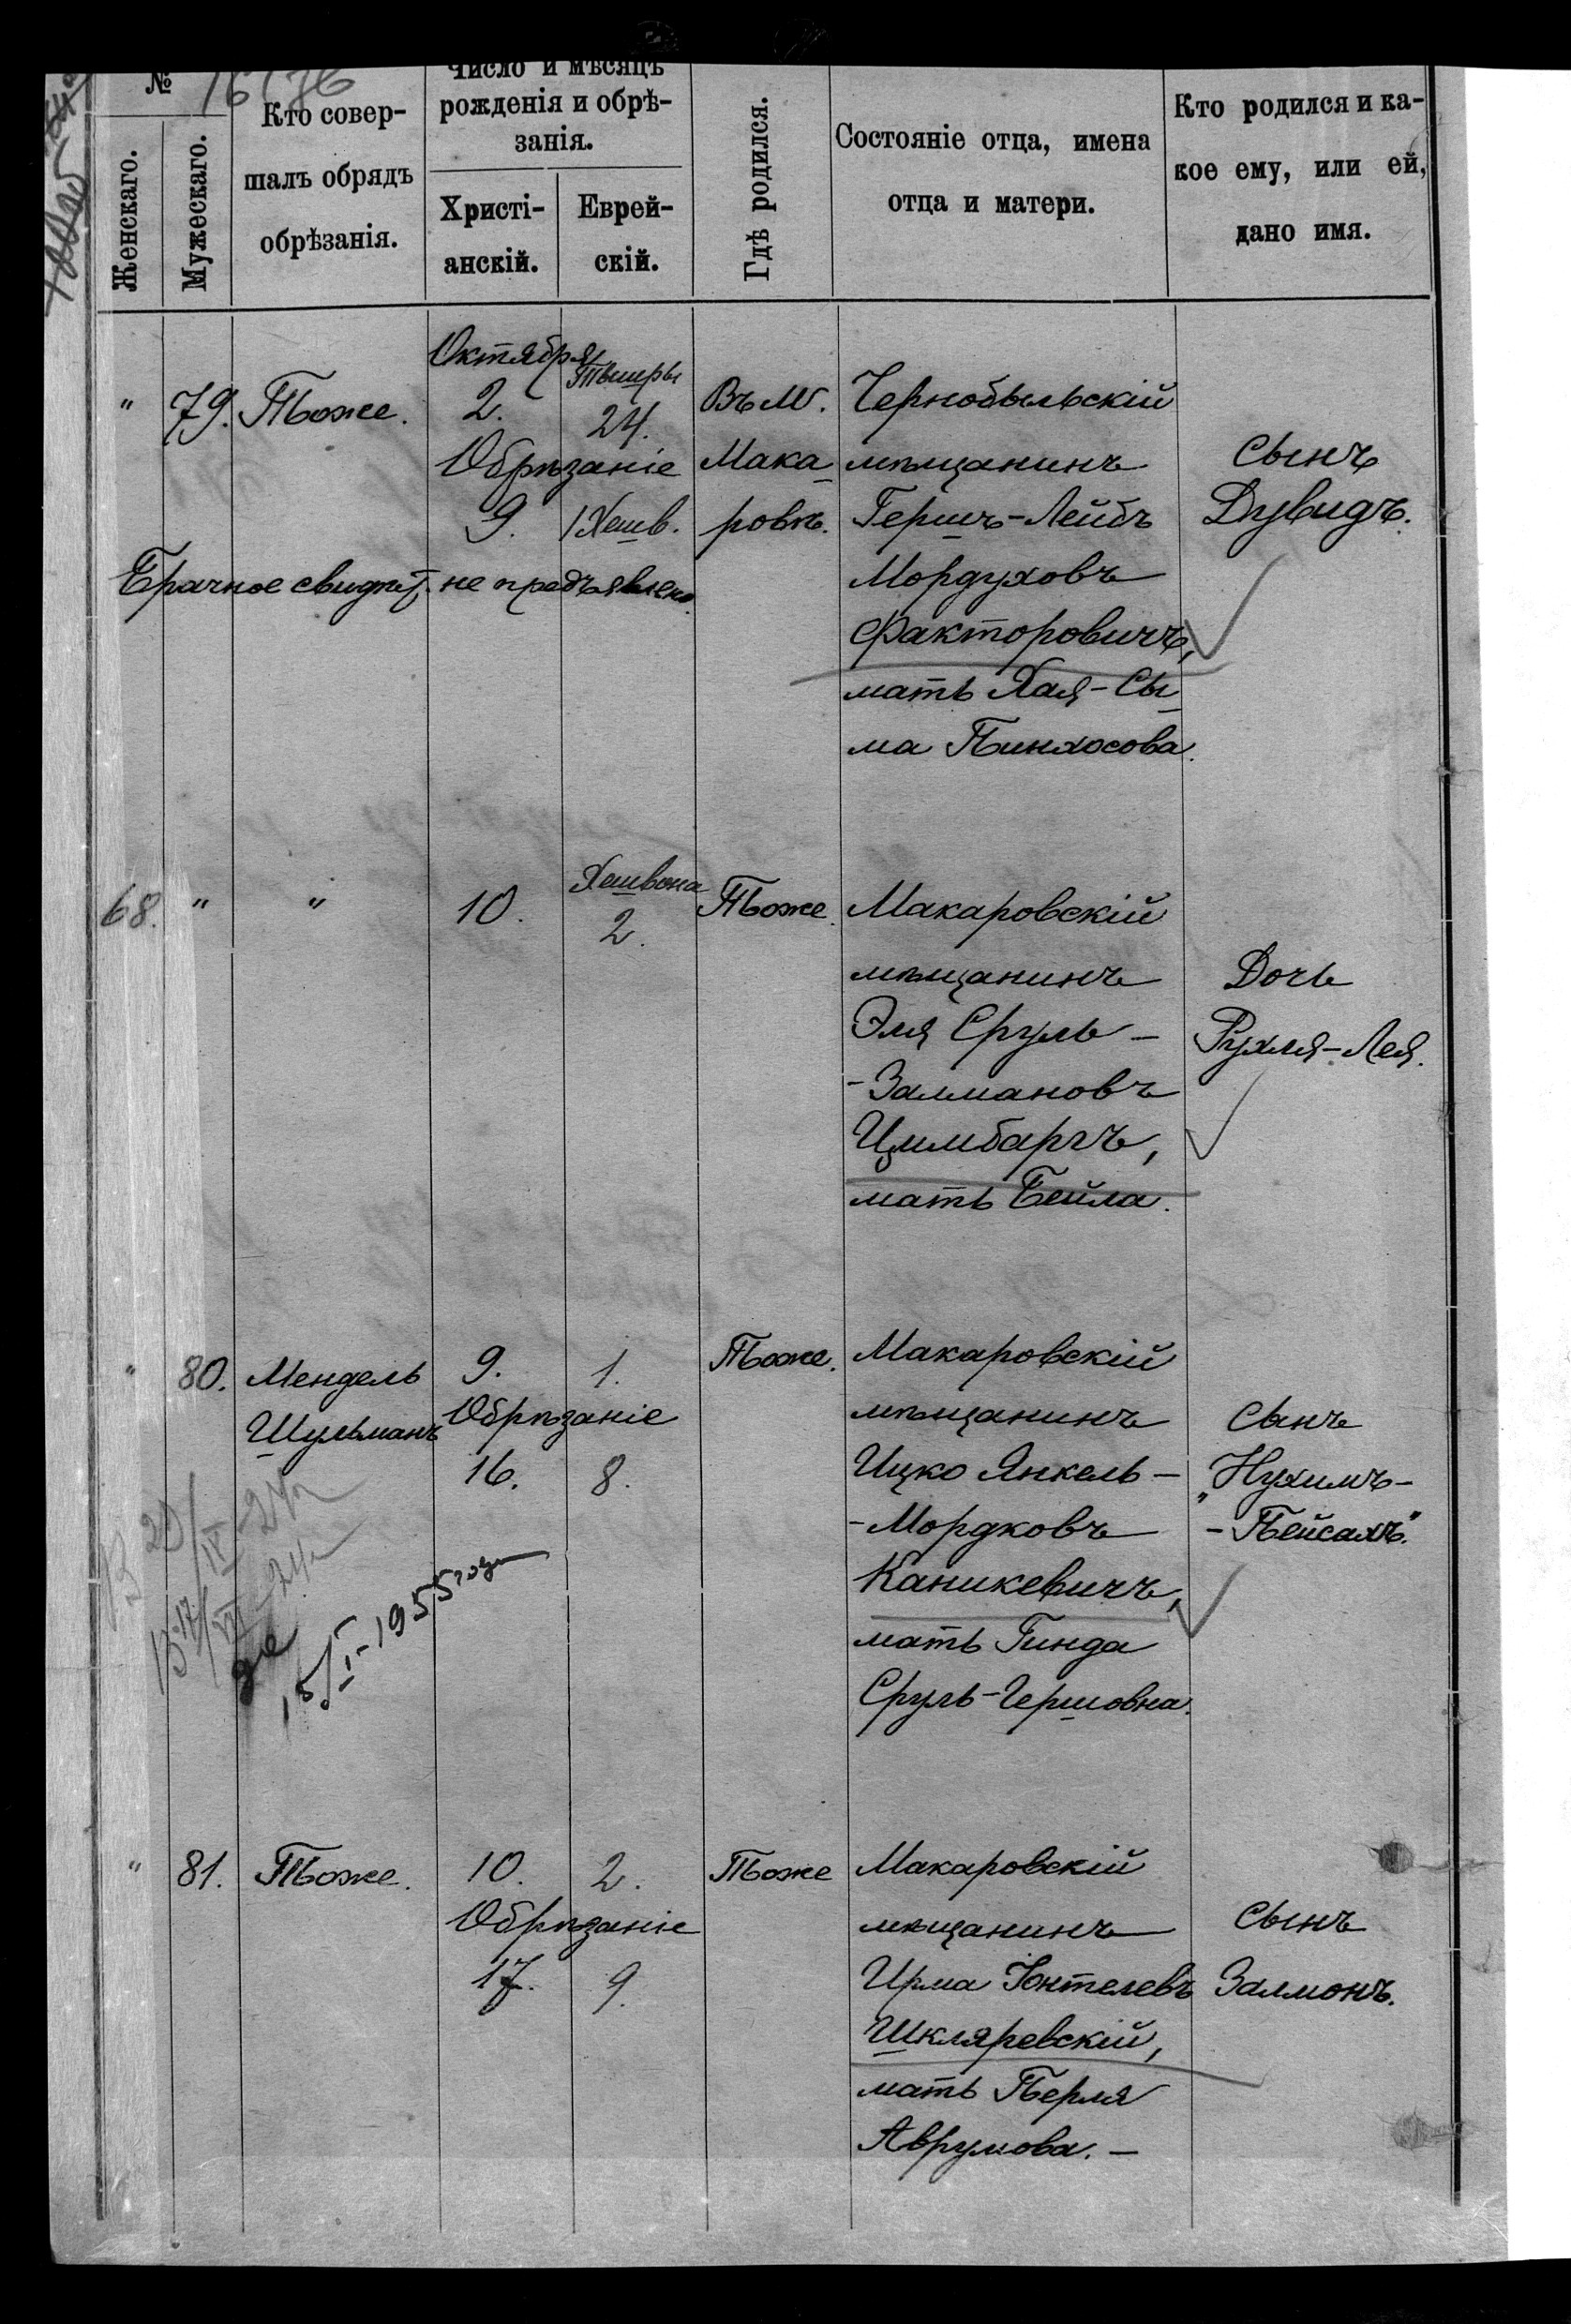 № 16176
Женскаго.
Мужескаго.
Кто совер-
шалъ обрядъ
обрѣзанія.
Число и мѣсяцъ
рожденія и обрѣ-
занія.
Христі-
анскій.
Еврей-
скій.
Гдѣ родился.
Состояніе отца, имена
отца и матери.
Кто родился и ка-
кое ему, или ей,
дано имя.
" 79. Тъоже.
Октября
2.
Тишры
24.
Обрѣзаніе
9. 1 Хешв.
Въ М.
Мака-
ровѣ.
Чернобыльскій
мѣщанинъ
Гершъ-Лейбъ
Мордуховъ
Факторовичъ,
мать Хая-Сы-
ма Пинхосова.
Сынъ
Дувидъ.
Брачное свидѣт. не предъявлено
68. " "
10.
Хешвона
2.
Тъоже.
Макаровскій
мѣщанинъ
Эля Сруль-
-Залмановъ
Цимбаргъ,
мать Бейла.
Дочь
Рухля-Лея.
" 80. Мендель
Шульманъ
9. 1.
Обрѣзаніе
16. 8.
Тъоже.
Макаровскій
мѣщанинъ
Ицко Янкель-
-Мордковъ
Каникевичъ,
мать Гинда
Сруль-Гершовна.
Сынъ
"Нухимъ-
-Пейсахъ".
15/I-1955 года
" 81. Тъоже.
10. 2.
Обрѣзаніе
17. 9.
Тъоже
Макаровскій
мѣщанинъ
Ирма Юнтелевъ
Шкляревскій,
мать Перля
Аврумова.-
Сынъ
Залмонъ.